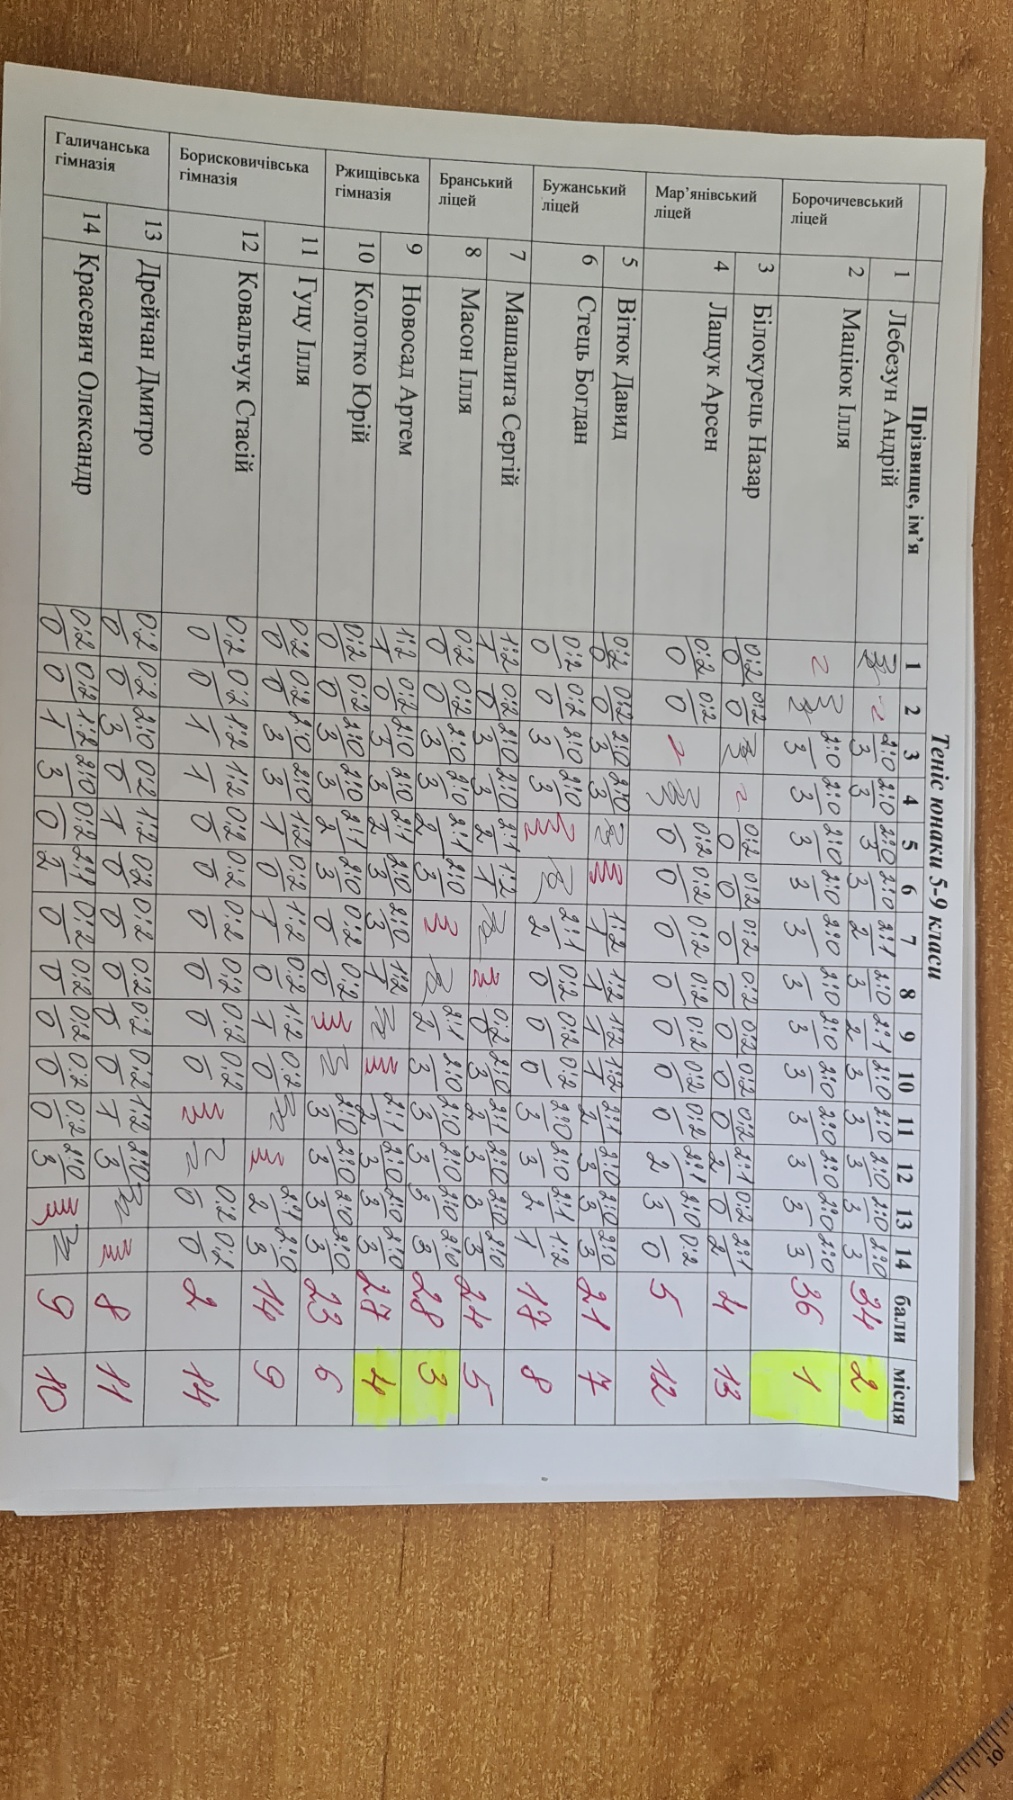 Теніс юнаки 5-9 класи
Прізвище, ім’я 1 2 3 4 5 6 7 8 9 10 11 12 13 14 бали місця
Борочичевський ліцей
1 Лебезун Андрій 2 2:0 2:0 2:0 2:0 2:1 2:0 2:1 2:0 2:0 2:0 2:0 2:0 34 2
3 3 3 3 2 3 2 3 3 3 3 3
2 Маціюк Ілля 2 2:0 2:0 2:0 2:0 2:0 2:0 2:0 2:0 2:0 2:0 2:0 2:0 36 1
3 3 3 3 3 3 3 3 3 3 3 3
Мар’янівський ліцей
3 Білокурець Назар 0:2 0:2 2 0:2 0:2 0:2 0:2 0:2 0:2 0:2 2:1 0:2 2:1 4 13
0 0 0 0 0 0 0 0 0 2 0 2
4 Лащук Арсен 0:2 0:2 2 0:2 0:2 0:2 0:2 0:2 0:2 0:2 2:1 2:0 0:2 5 12
0 0 0 0 0 0 0 0 0 2 3 0
Бужанський ліцей
5 Вітюк Давид 0:2 0:2 2:0 2:0 3 1:2 1:2 1:2 1:2 2:1 2:0 2:0 2:0 21 7
0 0 3 3 1 1 1 1 2 3 3 3
6 Стець Богдан 0:2 0:2 2:0 2:0 3 2:1 0:2 0:2 0:2 2:0 2:0 2:1 1:2 17 8
0 0 3 3 2 0 0 0 3 3 2 1
Бранський ліцей
7 Машалига Сергій 1:2 0:2 2:0 2:0 2:1 1:2 3 0:2 2:0 2:1 2:0 2:0 2:0 24 5
1 0 3 3 2 1 0 3 2 3 3 3
8 Масон Ілля 0:2 0:2 2:0 2:0 2:1 2:0 3 2:1 2:0 2:0 2:0 2:0 2:0 28 3
0 0 3 3 2 3 2 3 3 3 3 3
Ржищівська гімназія
9 Новосад Артем 1:2 0:2 2:0 2:0 2:1 2:0 2:0 1:2 3 2:1 2:0 2:0 2:0 27 4
1 0 3 3 2 3 3 1 2 3 3 3
10 Колотко Юрій 0:2 0:2 2:0 2:0 2:1 2:0 0:2 0:2 3 2:0 2:0 2:0 2:0 23 6
0 0 3 3 2 3 0 0 3 3 3 3
Борисковичівська гімназія
11 Гуцу Ілля 0:2 0:2 2:0 2:0 1:2 0:2 1:2 0:2 1:2 0:2 3 2:1 2:0 14 9
0 0 3 3 1 0 1 0 1 0 2 3
12 Ковальчук Стасій 0:2 0:2 1:2 1:2 0:2 0:2 0:2 0:2 0:2 0:2 3 0:2 0:2 2 14
0 0 1 1 0 0 0 0 0 0 0 0
Галичанська гімназія
13 Дрейчан Дмитро 0:2 0:2 2:0 0:2 1:2 0:2 0:2 0:2 0:2 0:2 1:2 2:0 3 8 11
0 0 3 0 1 0 0 0 0 0 1 3
14 Красевич Олександр 0:2 0:2 1:2 2:0 0:2 2:1 0:2 0:2 0:2 0:2 0:2 2:0 3 9 10
0 0 1 3 0 2 0 0 0 0 0 3
10